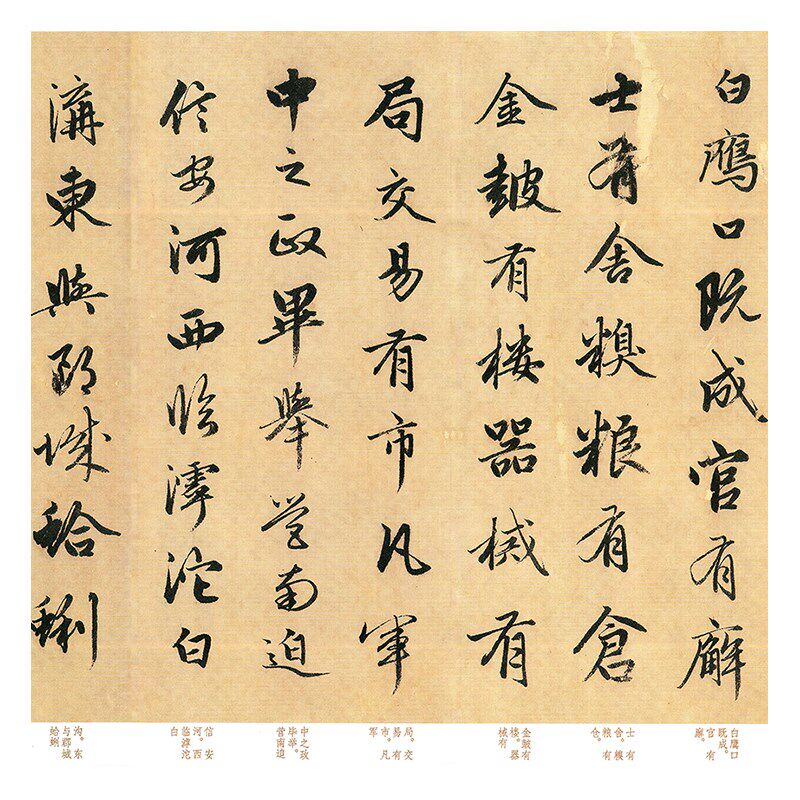 白鷹口既成官有廨
士有舍糗粮有倉
金皷有楼器械有
局交易有市凡軍
中之政畢舉營南迫
信安河西臨滹沱白
溝東與城蛤蜊
白鹰口
既成。
官有
廨。
士有
舍。糗
粮有
仓。
金皷有
楼。器
械有
局。交
易有
市。凡
军
中之政
毕举。
营南迫
信安
河。西
临滹沱
白
沟。东
与城
蛤蜊